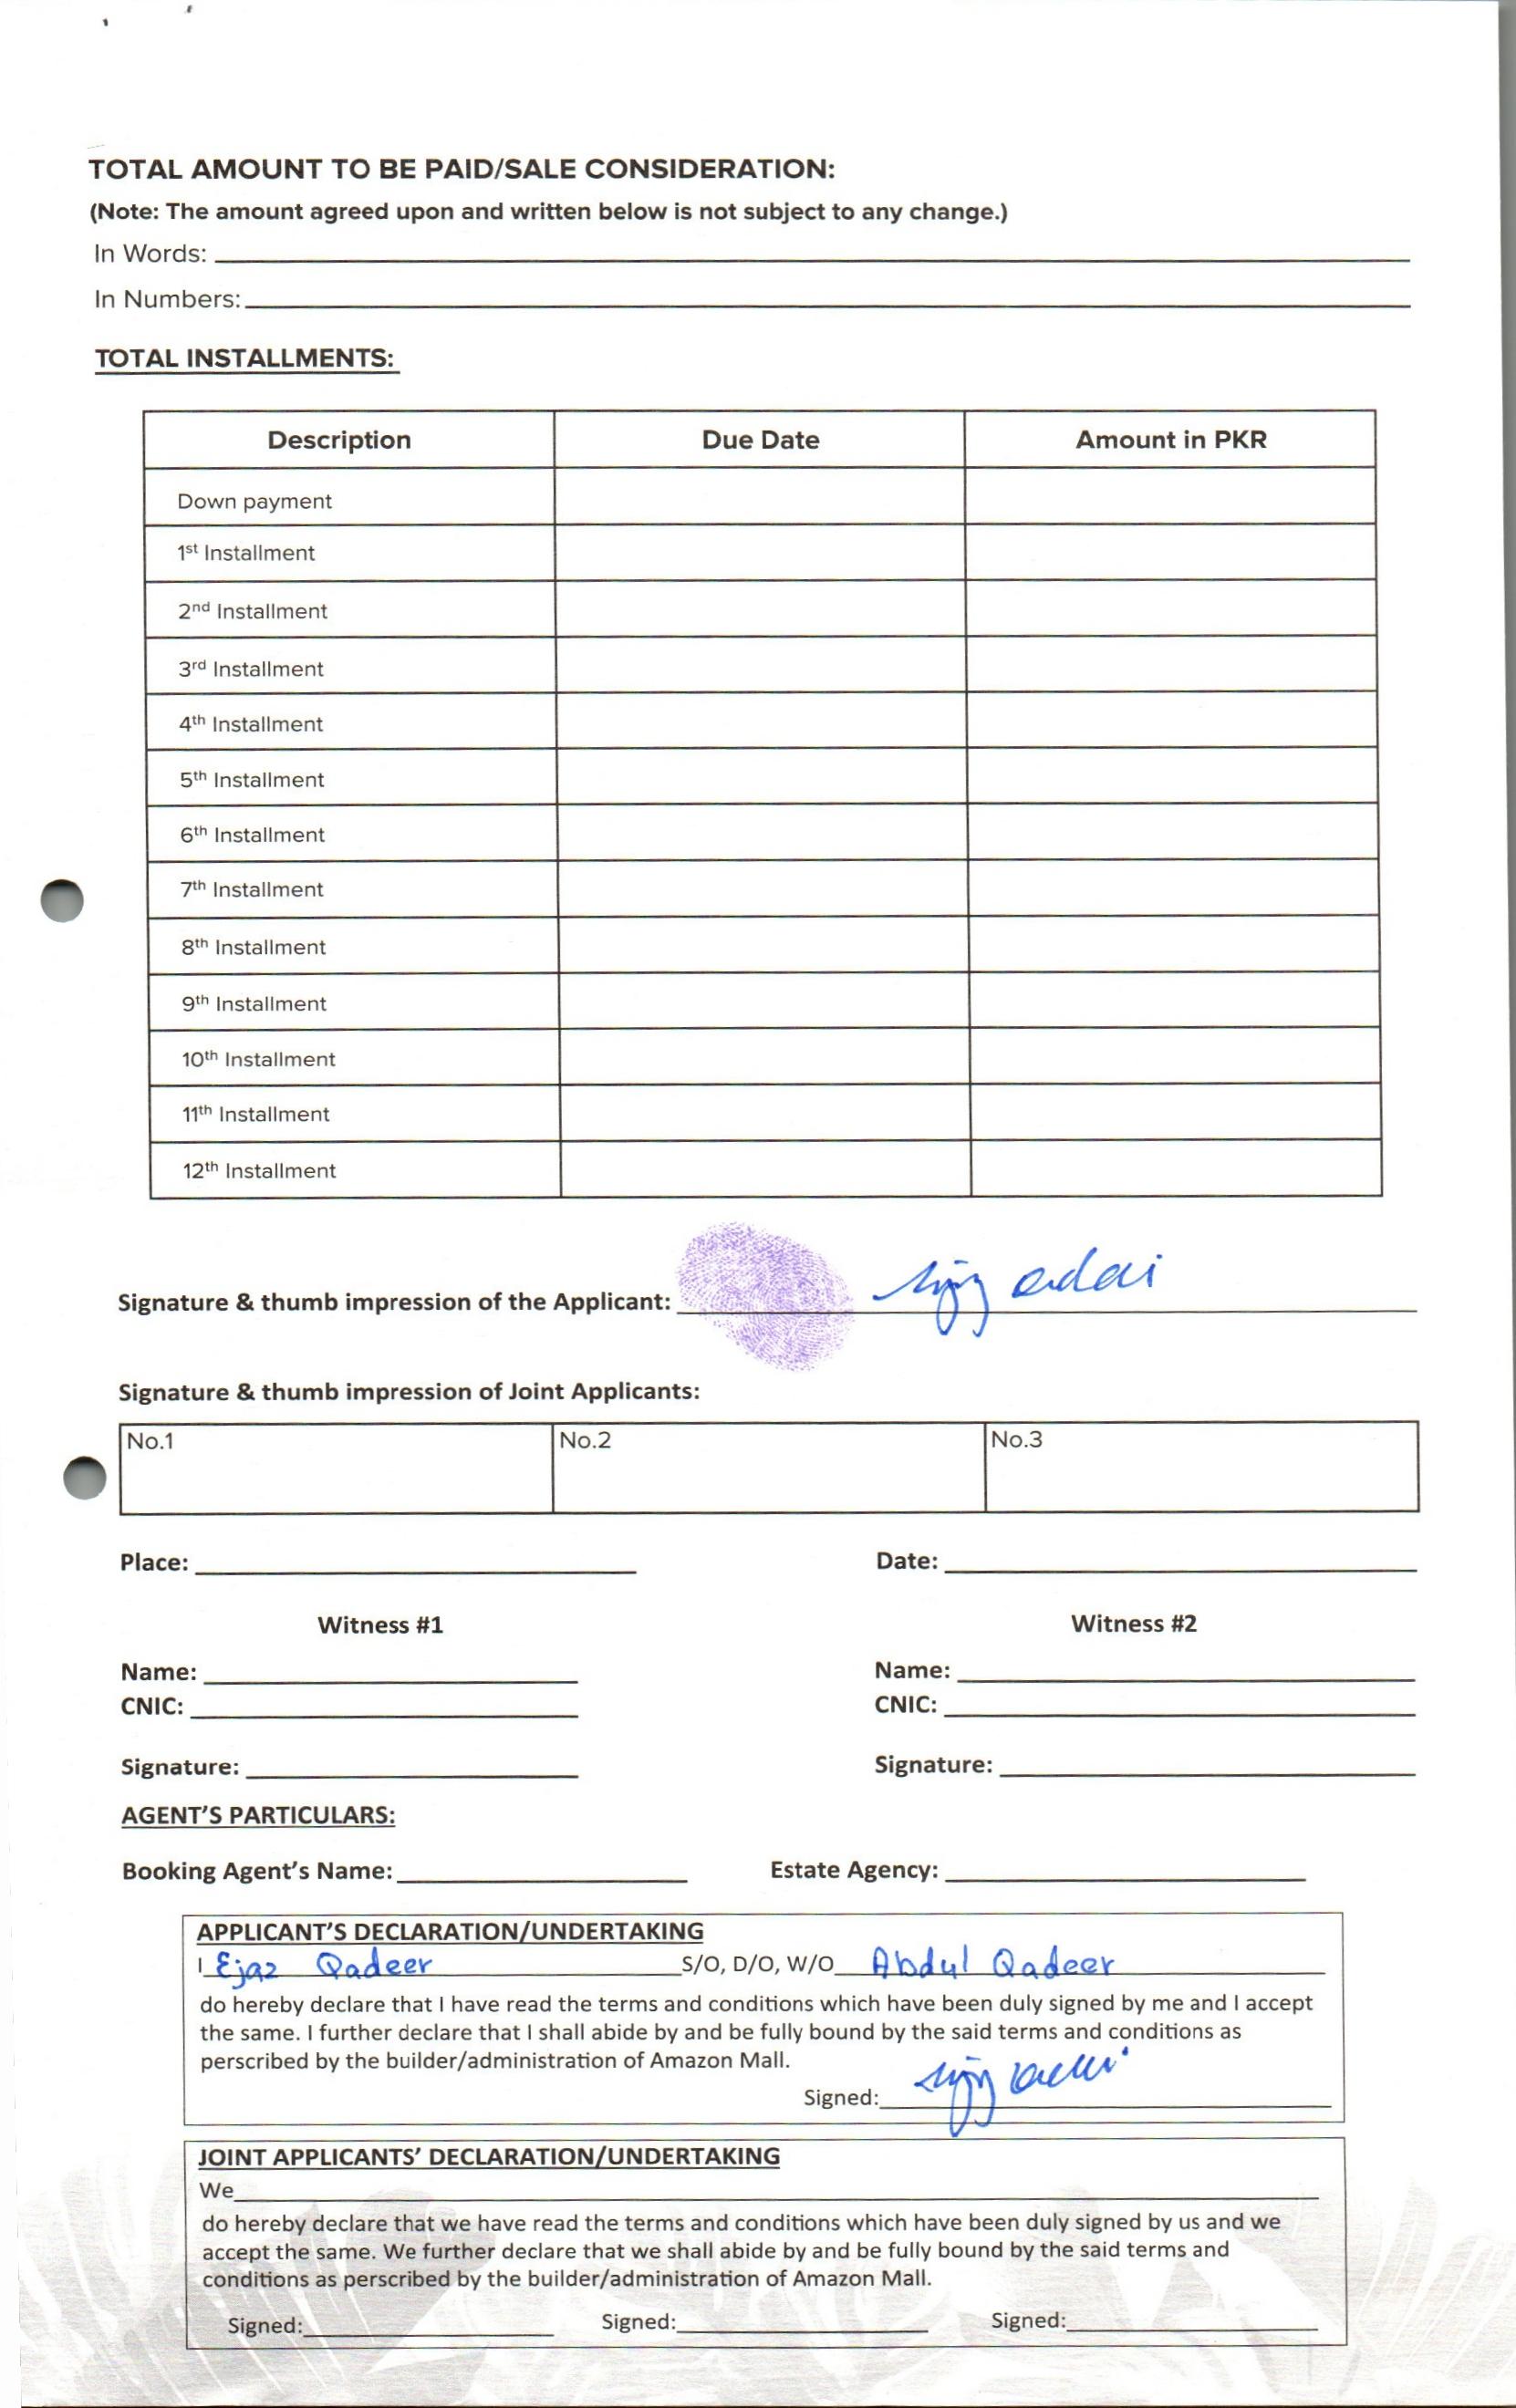 TOTAL AMOUNT TO BE PAID/SALE CONSIDERATION:
(Note: The amount agreed upon and written below is not subject to any change.)
In Words:
In Numbers:
TOTAL INSTALLMENTS:
Description Due Date Amount in PKR
Down payment
1st Installment
2nd Installment
3rd Installment
4th Installment
5th Installment
6th Installment
7th Installment
8th Installment
9th Installment
10th Installment
11th Installment
12th Installment
Signature & thumb impression of the Applicant:
Signature & thumb impression of Joint Applicants:
No.1 No.2 No.3
Place: Date:
Witness #1 Witness #2
Name: Name:
CNIC: CNIC:
Signature: Signature:
AGENT'S PARTICULARS:
Booking Agent's Name: Estate Agency:
APPLICANT'S DECLARATION/UNDERTAKING
I Ejaz Qadeer S/O, D/O, W/O Abdul Qadeer
do hereby declare that I have read the terms and conditions which have been duly signed by me and I accept
the same. I further declare that I shall abide by and be fully bound by the said terms and conditions as
perscribed by the builder/administration of Amazon Mall.
Signed:
JOINT APPLICANTS' DECLARATION/UNDERTAKING
We
do hereby declare that we have read the terms and conditions which have been duly signed by us and we
accept the same. We further declare that we shall abide by and be fully bound by the said terms and
conditions as perscribed by the builder/administration of Amazon Mall.
Signed: Signed: Signed: